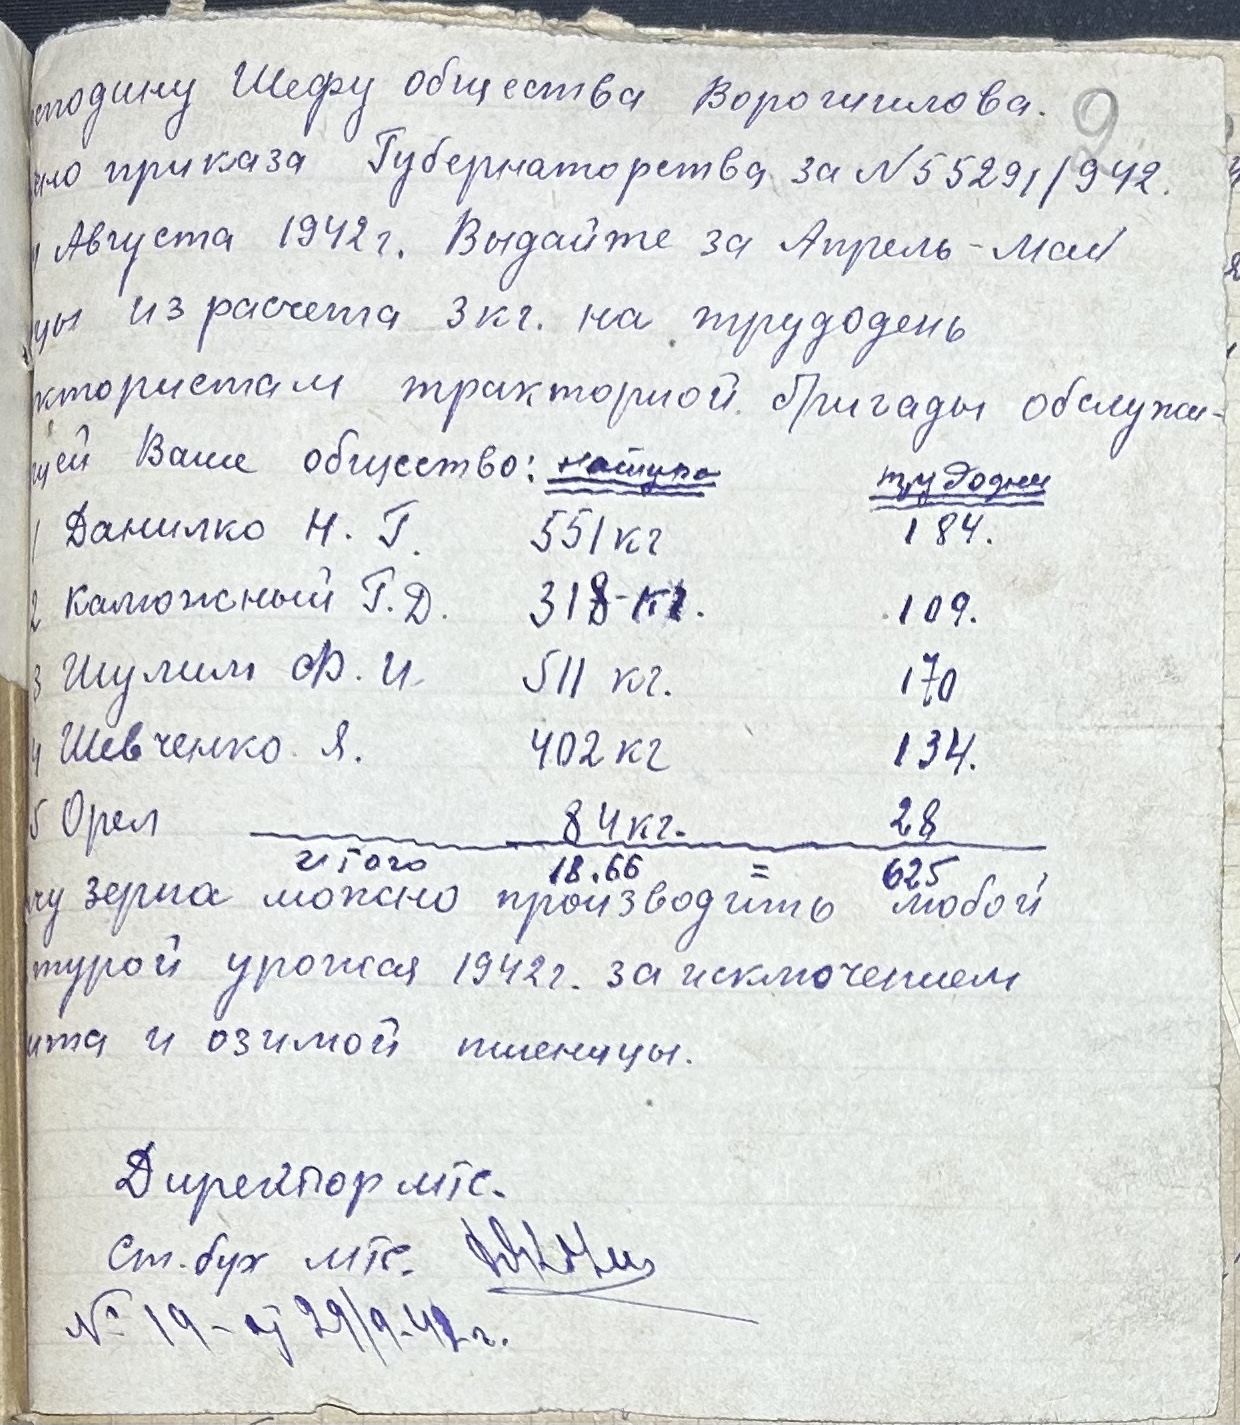 сподину Шефу общества Ворошилова.
9
сно приказа Губернаторства за №55291/942.
Августа 1942г. Выдайте за Апрель-Май
цы из расчета 3кг. на трудодень
ктористам тракторной бригады обслужи-
щей Ваше общество: натура трудодни
1 Данилко Н. Г. 551кг 184.
2 Калюжный Г.Д. 318-кг. 109.
3 Шулим Ф. И. 511 кг. 170
4 Шевченко Я. 402кг 134.
5 Орел 84кг. 28
итого 18.66 = 625
чу зерна можно производить любой
турой урожая 1942г. за исключением
ита и озимой пшеницы.
Директор мтс.
Ст. бух мтс.
№ 19-от 29/9-42г.